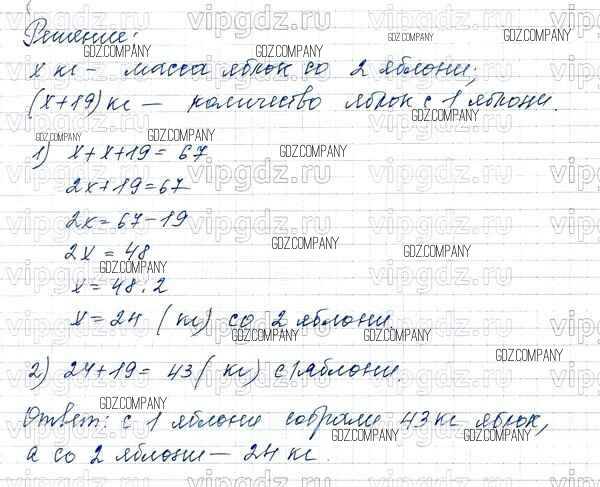 Решение:
x кг – масса яблок со 2 яблони;
(x+19) кг – количество яблок с 1 яблони.
1) x+x+19=67
2x+19=67
2x=67-19
2x=48
x=48:2
x=24 (кг) со 2 яблони.
2) 24+19=43 (кг) с 1 яблони.
Ответ: с 1 яблони собрали 43 кг яблок,
а со 2 яблони – 24 кг.
vipgdz.ru
GDZ.COMPANY